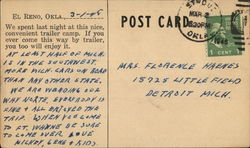 EL RENO, OKLA. 3-1-48
We spent last night at this nice,
convenient trailer camp. If you
ever come this way by trailer,
you too will enjoy it.
AT LEAST HALF OF MICH.
IS IN THE SOUTHWEST.
MORE MICH. CARS ON ROAD
THAN ANY OTHER STATE.
WE ARE WORKING OUR
WAY NORTH. EVERYBODY IS
FINE & ALL ENJOYED THE
TRIP. WHEN YOU COME
TO FT. WAYNE BE SURE
TO COME OVER
GENE & KIDS
POST CARD
MAR 2
OKLA
1 CENT
MRS. FLORENCE HARNES
15725 LITTLEFIELD
DETROIT MICH.